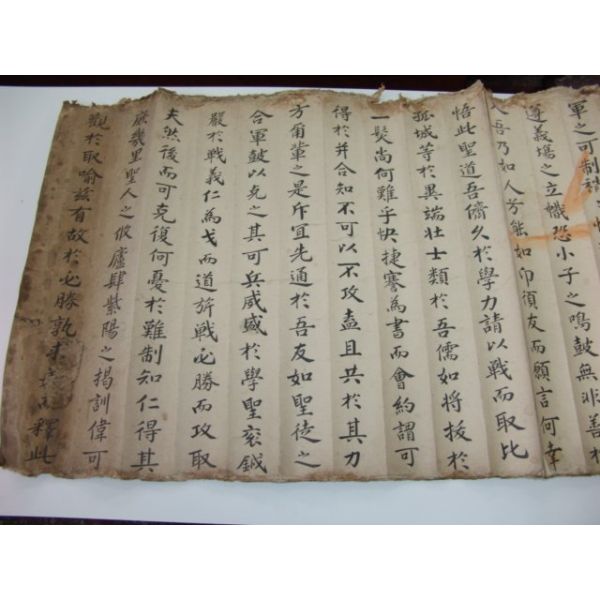 軍之可制
遵義場之立幟恐小子之鳴鼓無非善
吾乃如人方能如印須友而願言何幸
悟此聖道吾儕久於學力請以戰而取比
孤城等於異端壯士類於吾儒如將拔於
一髮尚何難乎快捷蹇為書而會約謂可
得於并合知不可以不攻盍且共於其力
方爾輩之是斥宜先通於吾友如聖徒之
合軍鼓以克之其可兵威盛於學聖衮鉞
嚴於戰義仁為戈而道旂戰必勝而攻取
夫然後而可克復何憂於難制知仁得其
庶幾里聖人之攸廬肆紫陽之揭訓偉可
觀於取喻玆有故於必勝孰 釋此